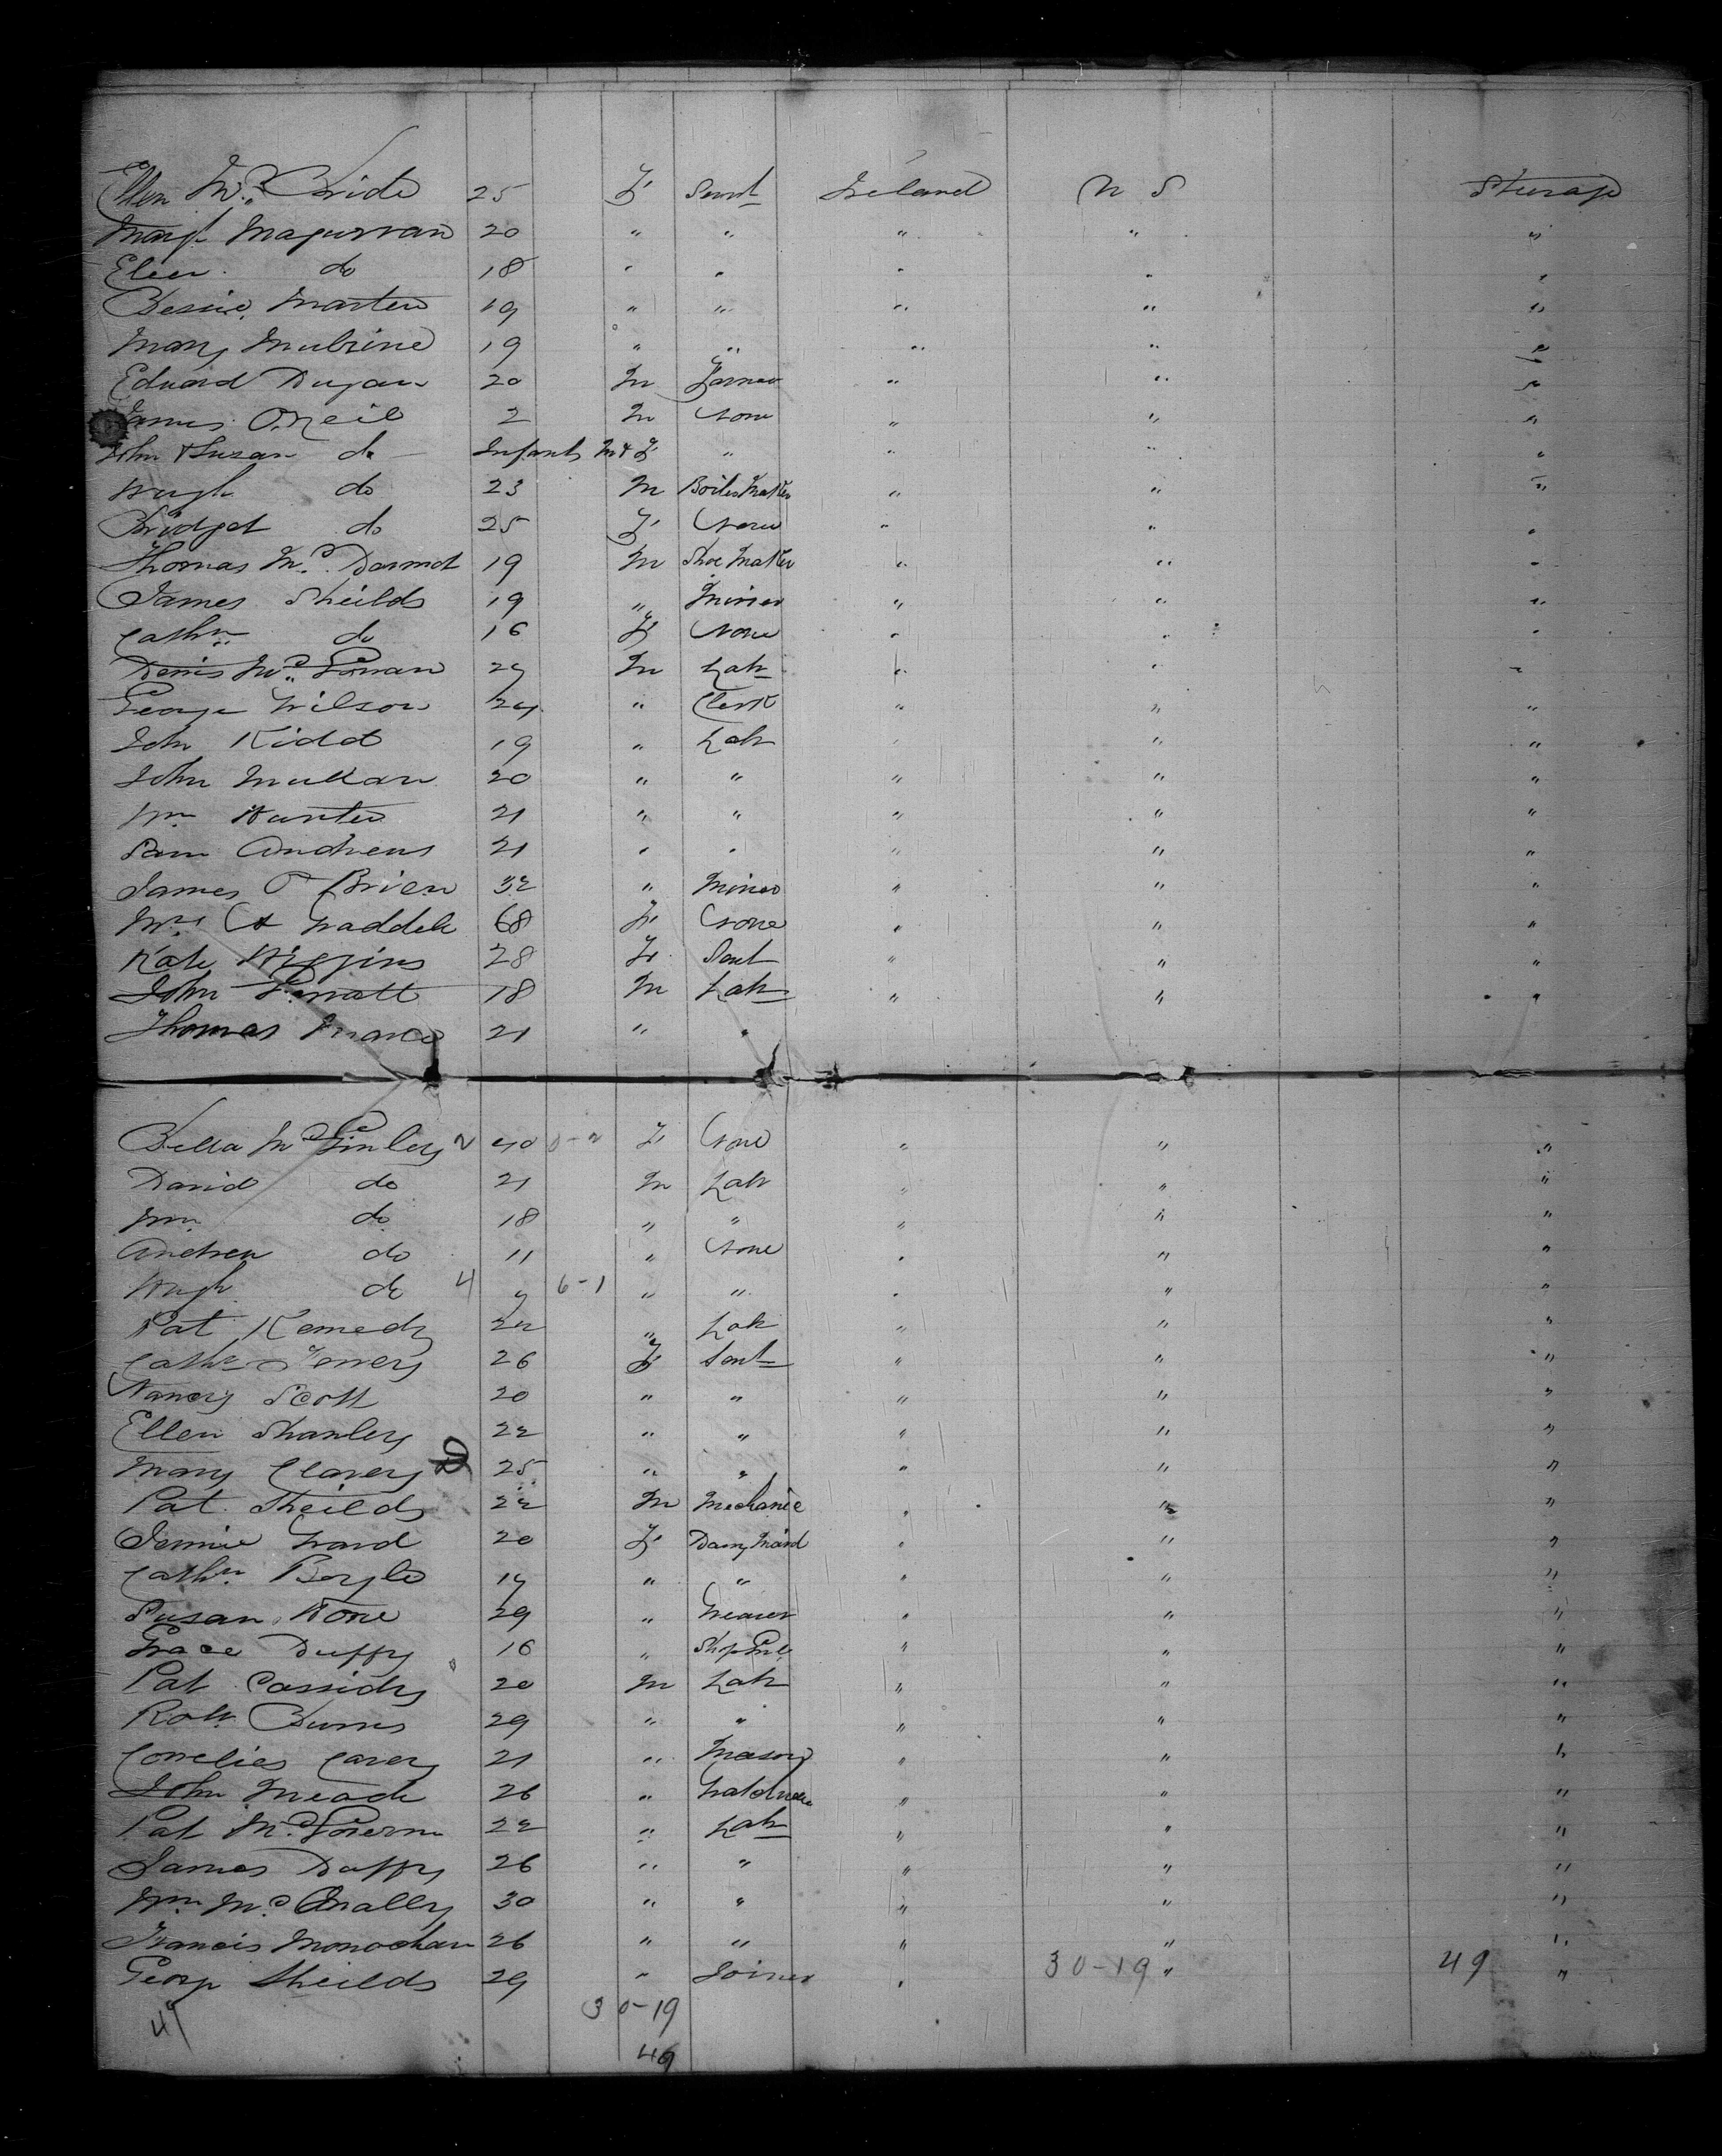 Ellen McBride 25 F Servt Ireland U S Steerage
Margt Magurran 20 " " " " "
Ellen do 18 " " " " "
Bessie Martin 19 " " " " "
Mary Mulrine 19 " " " " "
Edward Dugan 20 M Farmer " " "
James O'Neil 2 M None " " "
John & Susan do Infants M & F " " " "
Hugh do 23 M Boiler Maker " " "
Bridget do 25 F None " " "
Thomas McDarmot 19 M Shoe Maker " " "
James Sheilds 19 " Miner " " "
Cathn do 16 F None " " "
Denis McGowan 27 M Labr " " "
George Wilson 24 " Clerk " " "
John Kidd 19 " Labr " " "
John Mullan 20 " " " " "
Wm Hunter 21 " " " " "
Sam Andrews 21 " " " " "
James O'Brien 32 " Miner " " "
Mrs A Waddell 68 F None " " "
Kate Higgins 28 F Servt " " "
John 18 M Labr " " "
Thomas 21 " "
Bella McGinley 2 40 0-2 F None " " "
David do 21 M Labr " " "
Wm do 18 " " " " "
Andrew do 11 " None " " "
Hugh do 4 9 6-1 " " " " "
Pat Kennedy 22 " Labr " " "
Cathn 26 F Servt " " "
Nancy Scott 20 " " " " "
Ellen Shanley 22 " " " " "
Mary Clavery 25 " " " " "
Pat Sheilds 22 M Mechanic " " "
Jennie Ward 20 F Dairy Maid " " "
Cathn Boyle 17 " " " " "
Susan Hone 29 " Weaver " " "
Grace Duffy 16 " Shop Girl " " "
Pat Cassidy 20 M Labr " " "
Robt Burns 29 " " " " "
Cornelius Carey 21 " Mason " " "
John Meade 26 " " " "
Pat McGovern 22 " Labr " " "
James Duffy 26 " " " " "
Wm McAnally 30 " " " " "
Francis Monaghan 26 " " " " "
George Sheilds 29 " Joiner " 30-19 " 49 "
30-19
49